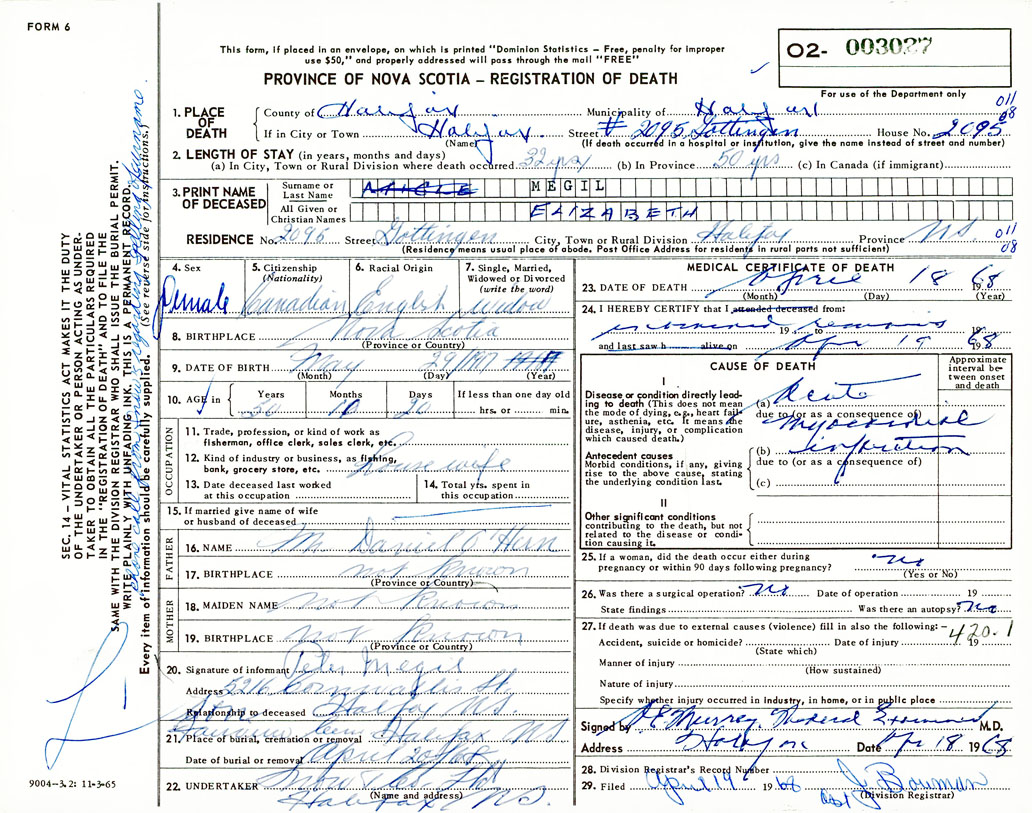 FORM 6
This form, if placed in an envelope, on which is printed "Dominion Statistics – Free, penalty for improper
use $50," and properly addressed will pass through the mail "FREE"
PROVINCE OF NOVA SCOTIA – REGISTRATION OF DEATH
02- 003027
For use of the Department only
011
08
1. PLACE OF DEATH
County of Halifax Municipality of Halifax
If in City or Town Halifax Street # 2095 Gottingen House No. 2095
(Name) (If death occurred in a hospital or institution, give the name instead of street and number)
2. LENGTH OF STAY (in years, months and days)
(a) In City, Town or Rural Division where death occurred 32 yrs (b) In Province 50 yrs (c) In Canada (if immigrant)
3. PRINT NAME OF DECEASED
Surname or Last Name MEGIL
All Given or Christian Names ELIZABETH
RESIDENCE No. 2095 Street Gottingen City, Town or Rural Division Halifax Province N.S.
(Residency means usual place of abode. Post Office Address for residents in rural parts not sufficient)
011
08
4. Sex Female
5. Citizenship (Nationality) Canadian
6. Racial Origin English
7. Single, Married, Widowed or Divorced (write the word) widow
8. BIRTHPLACE Nova Scotia
(Province or Country)
9. DATE OF BIRTH May 29/1917
(Month) (Day) (Year)
10. AGE in Years 50 Months 10 Days 20 If less than one day old hrs. or min.
OCCUPATION
11. Trade, profession, or kind of work as fisherman, office clerk, sales clerk, etc.
12. Kind of industry or business, as fishing, bank, grocery store, etc. Housewife
13. Date deceased last worked at this occupation
14. Total yrs. spent in this occupation
15. If married give name of wife or husband of deceased
FATHER
16. NAME Mr. Daniel O'Hern
17. BIRTHPLACE not known
(Province or Country)
MOTHER
18. MAIDEN NAME not known
19. BIRTHPLACE not known
(Province or Country)
20. Signature of informant Peter Megil
Address 5216 Cornwallis St.
Relationship to deceased Halifax N.S.
21. Place of burial, cremation or removal Halifax N.S.
Date of burial or removal April 20/68
22. UNDERTAKER
(Name and address)
Halifax N.S.
MEDICAL CERTIFICATE OF DEATH
23. DATE OF DEATH April 18 1968
(Month) (Day) (Year)
24. I HEREBY CERTIFY that I attended deceased from:
remains 19 19
and last saw h alive on Apr 19 1968
CAUSE OF DEATH
Approximate interval between onset and death
I
Disease or condition directly leading to death (This does not mean the mode of dying, e.g., heart failure, asthenia, etc. It means the disease, injury, or complication which caused death.)
(a) Acute
due to (or as a consequence of)
myocardial
(b) infarction
Antecedent causes
Morbid conditions, if any, giving rise to the above cause, stating the underlying condition last.
due to (or as a consequence of)
(c)
II
Other significant conditions contributing to the death, but not related to the disease or condition causing it.
25. If a woman, did the death occur either during pregnancy or within 90 days following pregnancy? no
(Yes or No)
26. Was there a surgical operation? no Date of operation 19
State findings Was there an autopsy? no
27. If death was due to external causes (violence) fill in also the following:–
420.1
Accident, suicide or homicide? Date of injury 19
(State which)
Manner of injury
(How sustained)
Nature of injury
Specify whether injury occurred in industry, in home, or in public place
Signed by Medical Examiner M.D.
Address Halifax Date Apr 18 1968
28. Division Registrar's Record Number
29. Filed April 19 1968 J. Bowman
(Division Registrar)
SEC. 14 – VITAL STATISTICS ACT MAKES IT THE DUTY
OF THE UNDERTAKER OR PERSON ACTING AS UNDER-
TAKER TO OBTAIN ALL THE PARTICULARS REQUIRED
IN THE "REGISTRATION OF DEATH" AND TO FILE THE
SAME WITH THE DIVISION REGISTRAR WHO SHALL ISSUE THE BURIAL PERMIT.
WRITE PLAINLY WITH UNFADING INK. THIS IS A PERMANENT RECORD.
Every item of information should be carefully supplied. (See reverse side for instructions.)
9004-3.2: 11-3-65